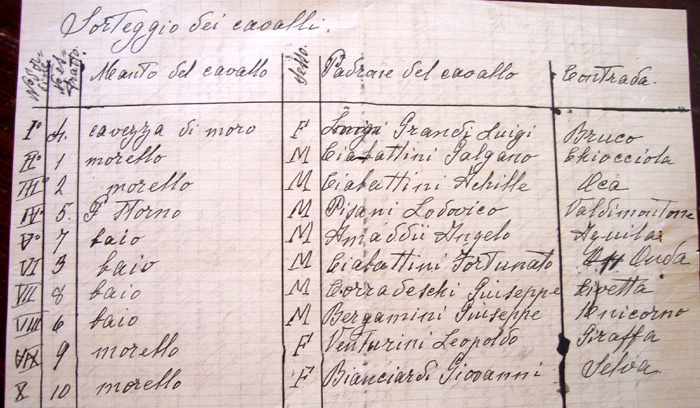 Sorteggio dei cavalli.
No d'Ordine No estratto Manto del cavallo Sesso Padrone del cavallo Contrada.
Iº 4. cavezza di moro F Grandi Luigi Bruco
IIº 1 morello M Ciabattini Galgano Chiocciola
IIIº 2 morello M Ciabattini Achille Oca
IVº 5. Storno M Pisani Lodovico Valdimontone
Vº 7 baio M Amaddii Angelo Aquila
VI 3 baio M Ciabattini Fortunato Onda
VII 8 baio M Corradeschi Giuseppe Civetta
VIII 6 baio M Bergamini Giuseppe Unicorno
9 morello F Venturini Leopoldo Giraffa
X 10 morello F Bianciardi Giovanni Selva